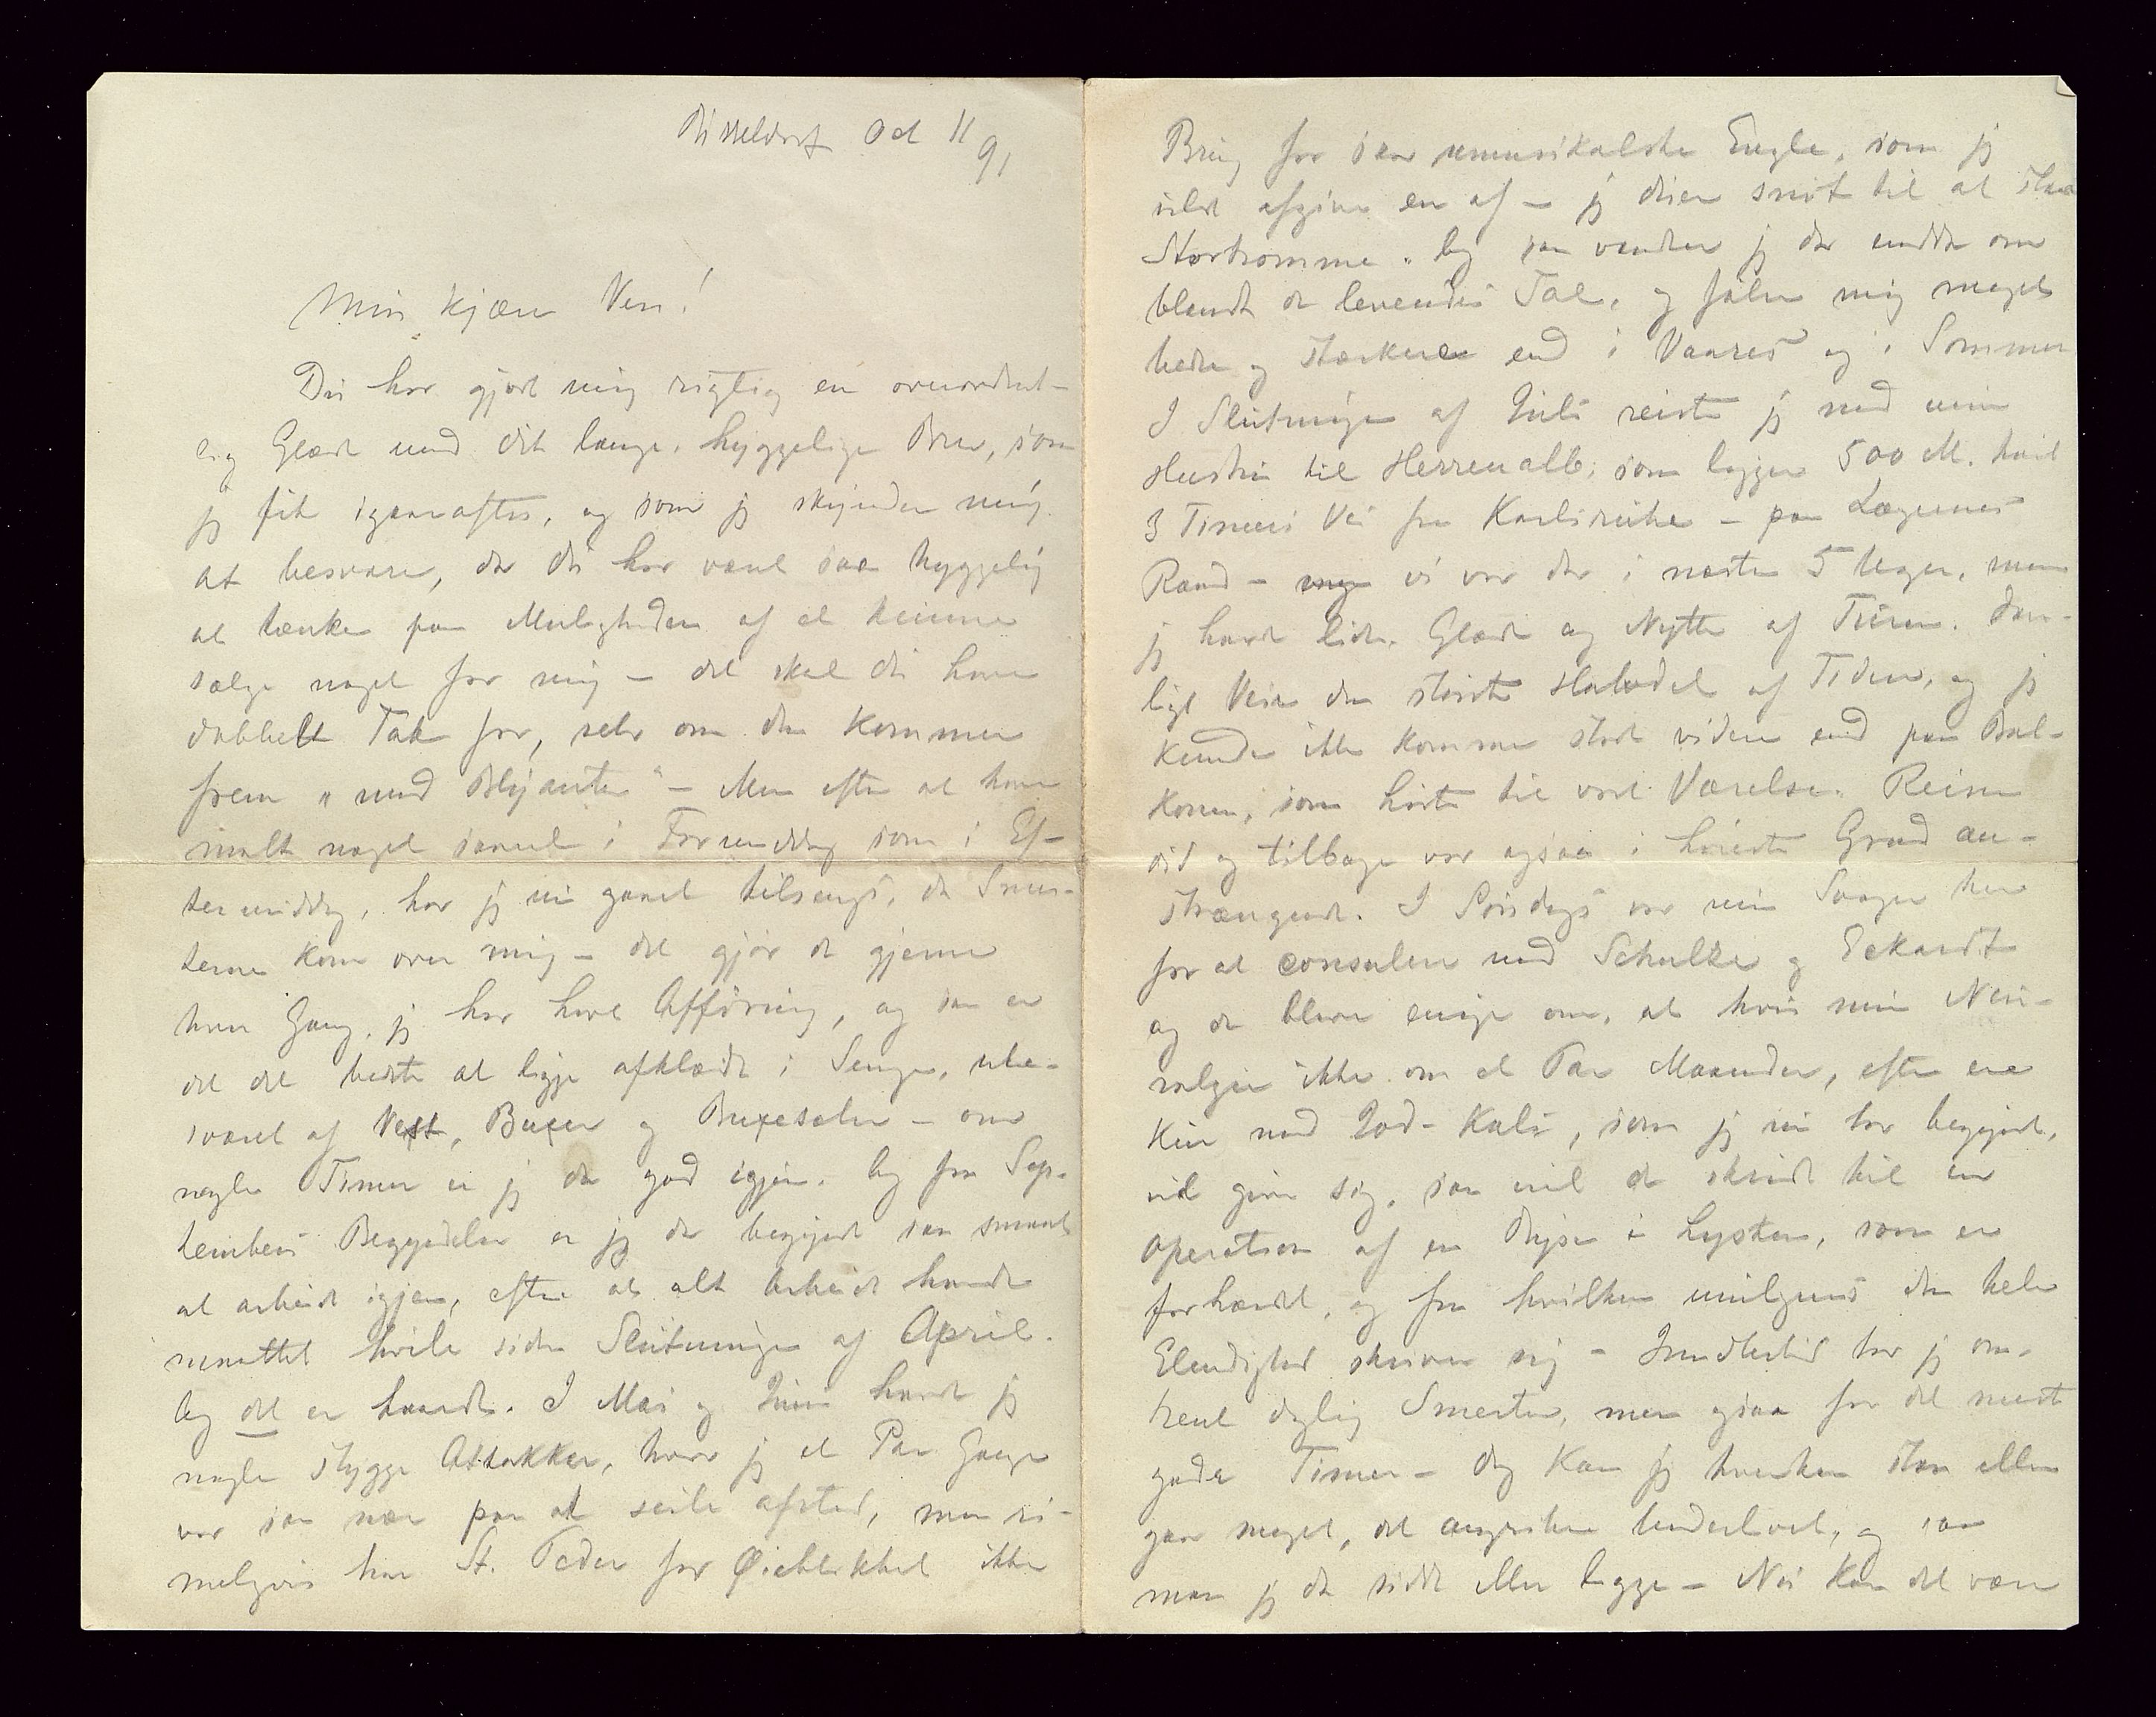 Düsseldorf Oct 11 91
Min kjære Ven!
Du har gjort mig rigtig en overordent-
lig Glæde med dit lange, hyggelige Brev, som
jeg fik igaaraftes, og som jeg skynder mig
at besvare, da du har været saa hyggelig
at tænke paa Muligheden af at kunne
sælge noget for mig – det skal du have
dobbelt Tak for, selv om den kommer
frem "med Blyanten" – Men efter at have
malt noget saavel i Formiddag som i Ef-
termiddag, har jeg nu gaaet tilsengs, da Smer-
terne kom over mig – det gjør de gjerne
hver Gang jeg har havt Afføring, og saa er
det det bedste at ligge afklædt i Sengen, ube-
sværet af Vest, Buxer og Buxeseler – om
nogle Timer er jeg da god igjen. Og fra Sep-
tembers Begyndelse er jeg da begyndt saa smaat
at arbeide igjen, efter at alt Arbeide havde
maattet hvile siden Slutningen af April.
Og det er haardt. I Mai og Juni havde jeg
nogle stygge Attakker, hvor jeg et Par Gange
var saa nær paa at seile afsted, men ri-
meligvis har St. Peder for Øieblikket ikke
Brug for saa umusikalske Engle, som jeg
vilde afgive en af – jeg duer snart til at slaa
Stortromme. Og saa vandrer jeg da endda om
blandt de levendes Tal, og føler mig meget
bedre og stærkere end i Vaares og i Sommer
I Slutningen af Juli reiste jeg med min
Hustru til Herrenalb, som ligger 500 M. høit
3 Timers Vei fra Karlsruhe – paa Lægernes
Raad – vi var der i næsten 5 Uger, men
jeg havde liden Glæde og Nytte af Turen. Daar-
ligt Veir den største Halvdel af Tiden, og jeg
kunde ikke komme stort videre end paa Bal-
konen, som hørte til vort Værelse. Reisen
did og tilbage var ogsaa i høieste Grad an-
strængende. I Søndags var min Svoger her
for at consulere med Schultze og Eckardt
og de bleve enige om, at hvis min Neu-
ralgie ikke om et Par Maaneder, efter en
Kur med Jod-Kali, som jeg nu har begyndt,
vil give sig, saa vil de skride til en
Operation af en Dryse i Lysken, som er
forhærdet, og fra hvilken muligens den hele
Elendighed skriver sig – Imidlertid har jeg om-
trent daglig Smerter, men ogsaa for det meste
gode Timer – dog kan jeg hverken staa eller
gaa meget, det angriber Underlivet, og saa
maa jeg da sidde eller ligge – Nu kan det være